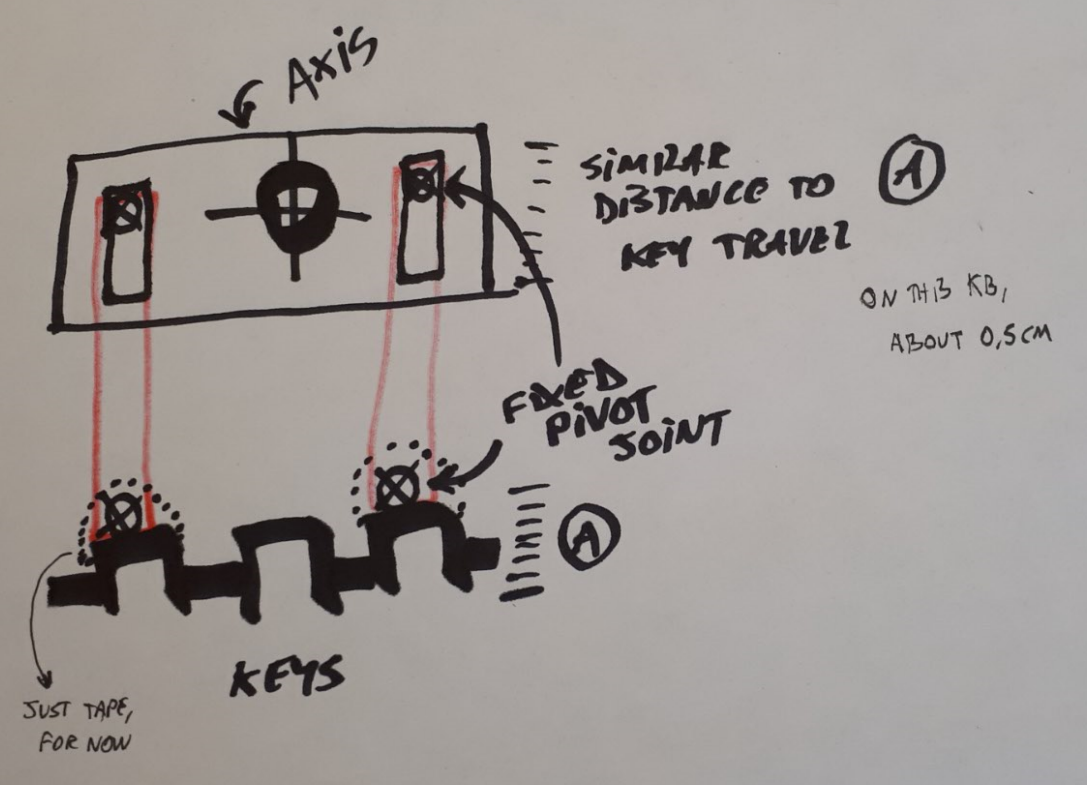 AXIS
SIMILAR
DISTANCE TO
KEY TRAVEL
A
ON THIS KB,
ABOUT 0,5CM
FIXED
PIVOT
JOINT
A
KEYS
JUST TAPE,
FOR NOW